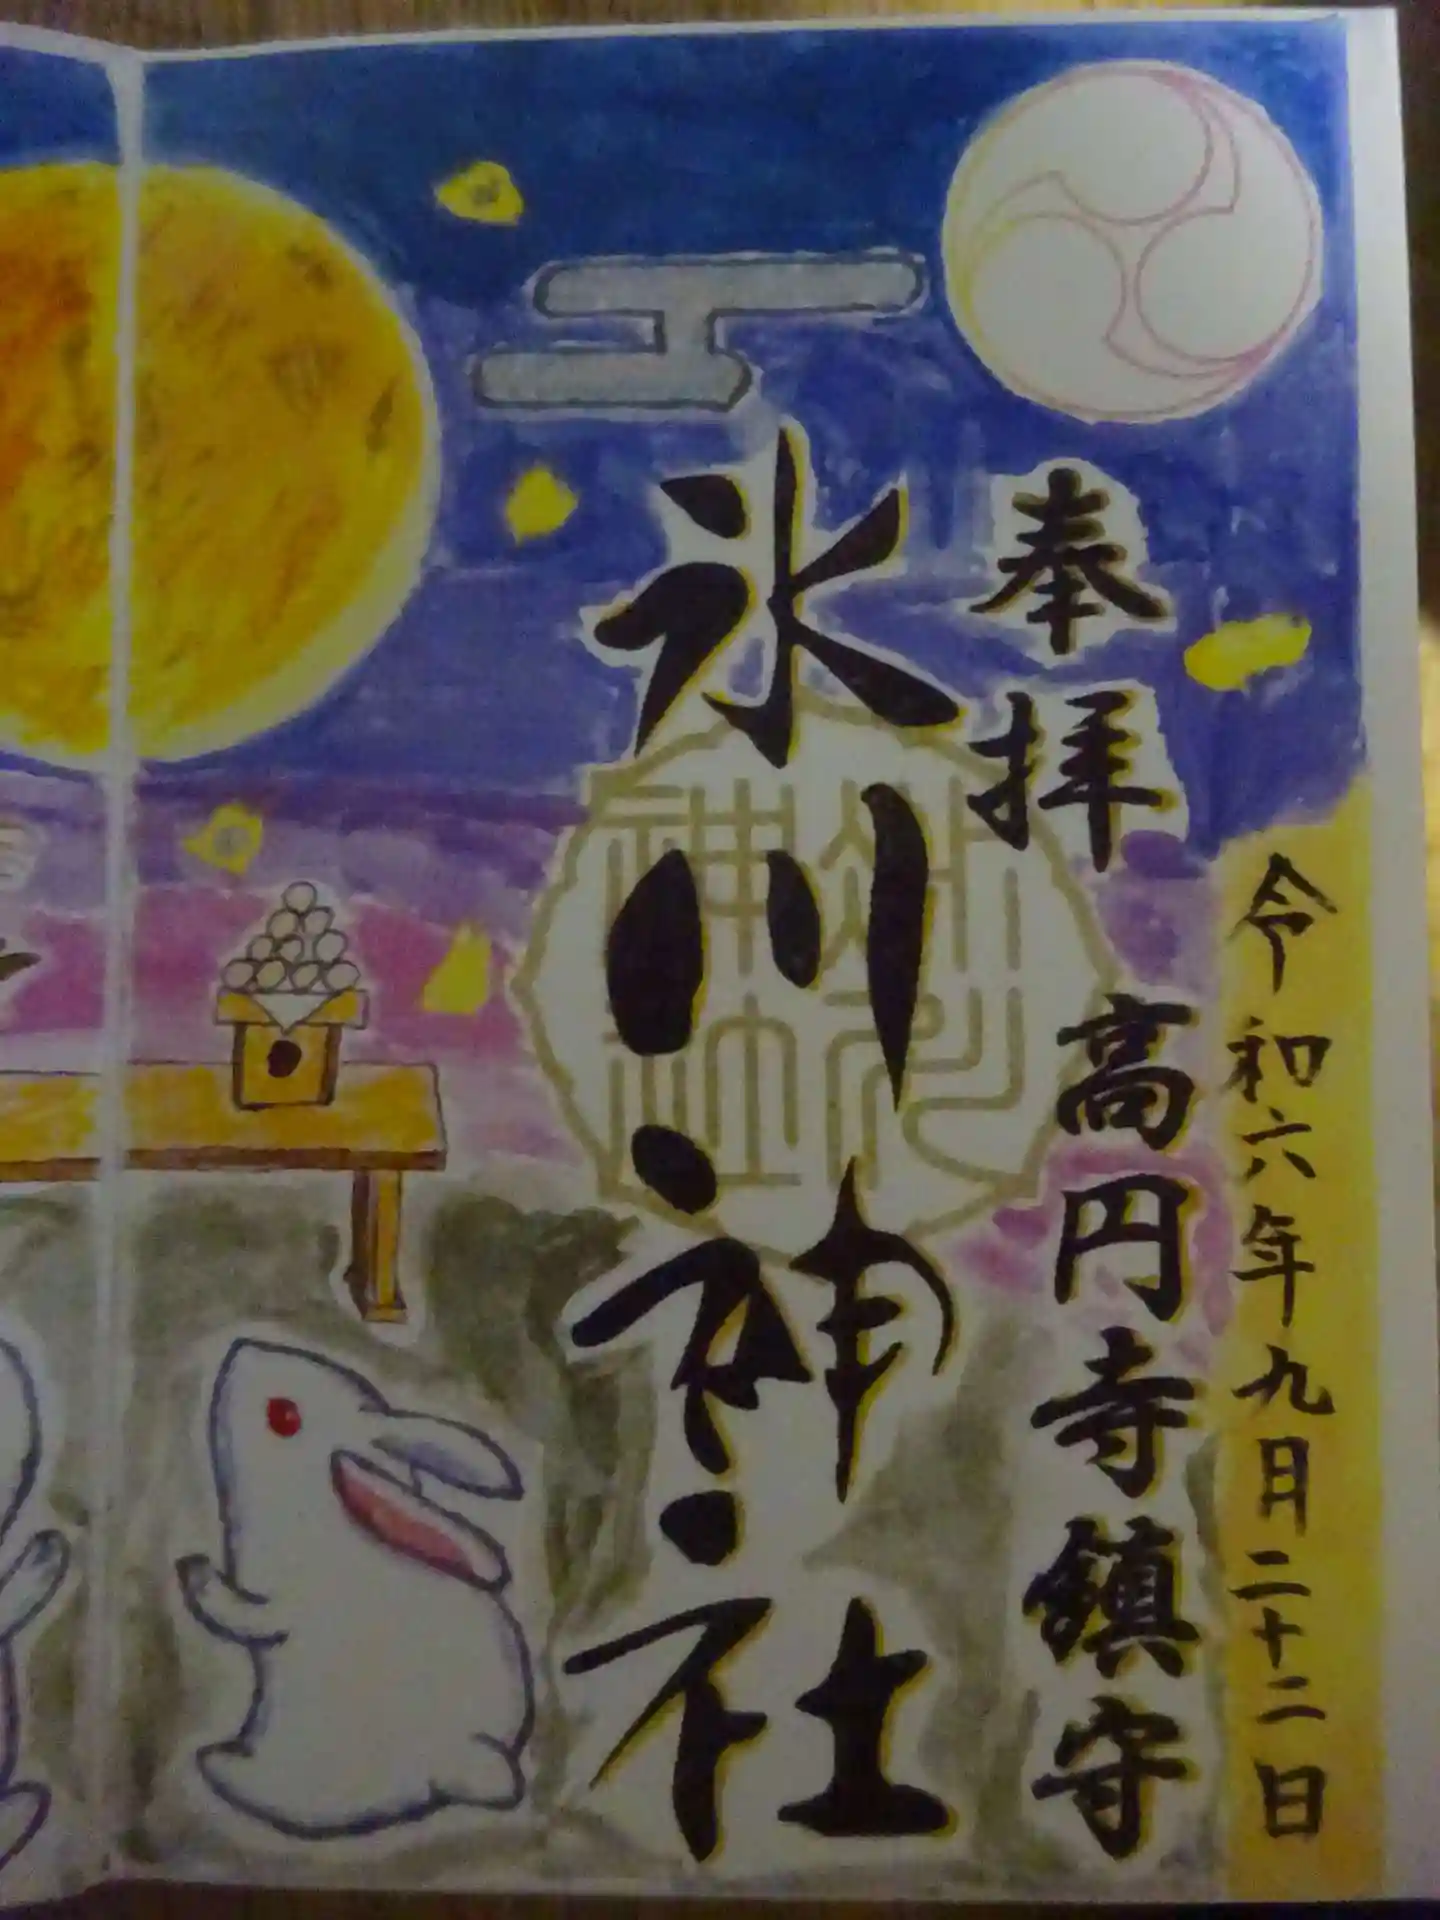 令和六年九月二十二日
奉拝 高円寺鎮守
氷川神社
氷川
神社